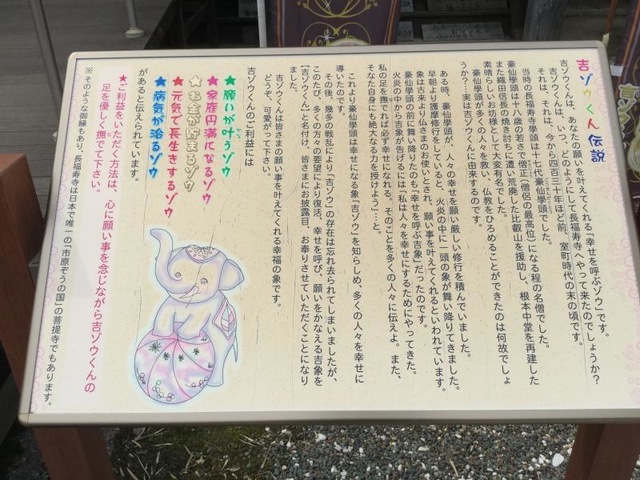 吉ゾウくん伝説
吉ゾウくんは、あなたの願いを叶えてくれる「幸せを呼ぶゾウ」です。
吉ゾウくんは、いつ、どのようにして長福寿寺へやって来たのでしょうか？
それは、それは、今から四百三十年ほど前、室町時代の末の頃です。
当時の長福寿寺學頭は十七代豪仙學頭でした。
豪仙學頭は三十八歳の若さで僧正（僧侶の最高位）になる程の名僧でした。
また織田信長の焼き討ちに遭い荒廃した比叡山を援助し、根本中堂を再建した
素晴らしいお坊様として大変有名でした。
豪仙學頭が多くの人々を救い、仏教をひろめることができたのは何故でしょ
うか？…実は吉ゾウくんに由来するのです。
ある時、豪仙學頭が、人々の幸せを願い厳しい修行を積んでいました。
早朝より護摩修行をしていると、火炎の中に一頭の象が舞い降りてきました。
象は古来より仏さまのお使いとされ、願い事を叶えてくれるといわれています。
豪仙學頭の前に舞い降りたのも「幸せを呼ぶ吉象」だったのです。
火炎の中から吉象が告げるには「私は人々を幸せにするためにやってきた。
私の足を撫でれば必ず幸せになれる。そのことを多くの人々に伝えよ。また、
そなた自身にも絶大なる力を授けよう」…と。
これより豪仙學頭は幸せになる象「吉ゾウ」を知らしめ、多くの人々を幸せに
導いたのです。
その後、幾多の戦乱により「吉ゾウ」の存在は忘れ去られてしまいましたが、
このたび、多くの方々の要望により復活、幸せを呼び、願いをかなえる吉象を
【吉ゾウくん】と名付け、皆さまにお披露目、お奉りさせていただくことになり
ました。
吉ゾウくんは皆さまの願い事を叶えてくれる幸福の象です。
どうぞ、可愛がって下さい。
吉ゾウくんのご利益には
★願いが叶うゾウ
★家庭円満になるゾウ
★お金が貯まるゾウ
★元気で長生きするゾウ
★病気が治るゾウ
があると伝えられています。
★ご利益をいただく方法は、心に願い事を念じながら吉ゾウくんの
足を優しく撫でて下さい。
※そのような御縁もあり、長福寿寺は日本で唯一の「市原ぞうの国」の菩提寺でもあります。